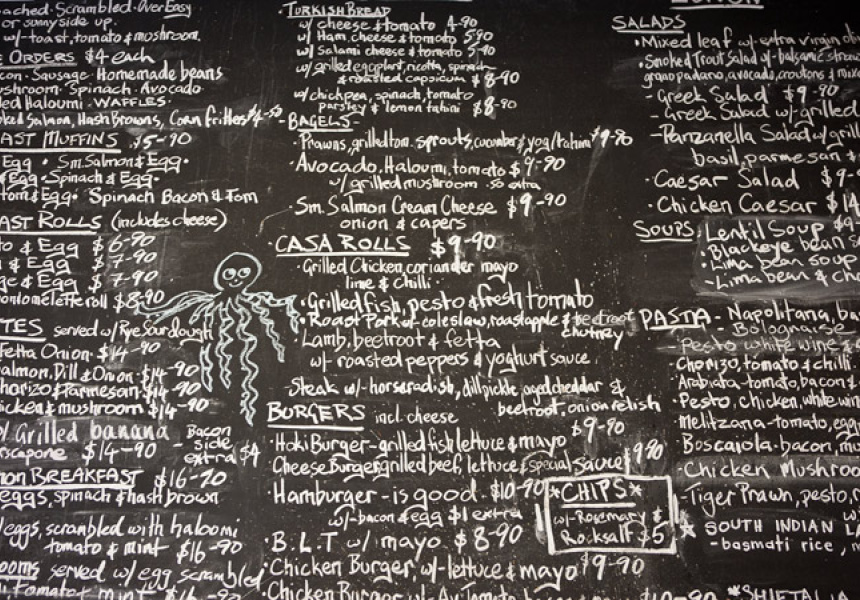 ached. Scrambled. Over Easy
or sunny side up.
w/-toast, tomato & mushroom.
ORDERS $4 each
con. Sausage. Homemade beans
shroom. Spinach. Avocado.
ed Haloumi. WAFFLES.
ked Salmon, Hash Browns, Corn fritters $4-50
AST MUFFINS $5-90
Egg. Sm. Salmon & Egg.
Egg. Spinach & Egg.
tom & Egg. Spinach Bacon & Tom
AST ROLLS (includes cheese)
to & Egg $6-90
& Egg $7-90
ge & Egg $7-90
omelette roll $8-90
TES served w/ Rye Sourdough
Fetta Onion. $14-90
almon, Dill & Onion. $14-90
horizo & Parmesan $14-90
icken & mushroom $14-90
w/ Grilled banana
rscapone $14-90
Bacon
side
extra $4
BREAKFAST $16-90
eggs, spinach & hash brown
eggs, scrambled with haloomi
tomato & mint $16-90
ooms served w/ egg scrambled
tomato & mint $16-90
TURKISH BREAD
w/ cheese & tomato 4-90
w/ Ham, cheese & tomato 5-90
w/ Salami cheese & tomato 5-90
w/ grilled eggplant, ricotta, spinach
& roasted capsicum $8-90
w/ chickpea, spinach, tomato
parsley & lemon tahini $8-90
BAGELS-
Prawns, grilled tom. sprouts, cucumber & yog/tahini $9-90
Avocado, Haloumi, tomato $9-90
w/ grilled mushroom .50 extra
Sm. Salmon Cream Cheese $9-90
onion & capers
CASA ROLLS $9-90
Grilled Chicken, coriander mayo
lime & chilli
Grilled fish, pesto & fresh tomato
Roast Pork w/ coleslaw, roast apple & beetroot
chutney
Lamb, beetroot & fetta
w/ roasted peppers & yoghurt sauce
Steak w/- horseradish, dill pickle, aged cheddar &
beetroot, onion relish
$9-90
BURGERS incl. cheese
Hoki Burger - grilled fish lettuce & mayo
Cheese Burger, grilled beef, lettuce & special sauce $9-90
Hamburger - is good. $10-90
w/- bacon & egg $1 extra
B.L.T w/ mayo. $8-90
Chicken Burger, w/- lettuce & mayo $9-90
Chicken Burger w/ Av, Tomato
*CHIPS*
w/- Rosemary &
Rocksalt $5
SALADS
Mixed leaf w/- extra virgin
Smoked Trout Salad w/- balsamic
grano padano, avocado, croutons &
- Greek Salad $9-90
- Greek Salad w/- grilled
- Panzanella Salad w/ grill
basil, parmesan &
Caesar Salad $9-
Chicken Caesar $14
SOUPS Lentil Soup $9
Blackeye bean
Lima bean soup
- Lima bean & ch
PASTA - Napolitana,
- Bolognaise
Pesto white wine &
Chorizo, tomato & chilli
Arabiata - tomato, bacon &
Pesto, chicken, white win
Melitzana - tomato, egg
Boscaiola - bacon, mu
- Chicken Mushroo
- Tiger Prawn, pesto,
* SOUTH INDIAN
- basmati rice,